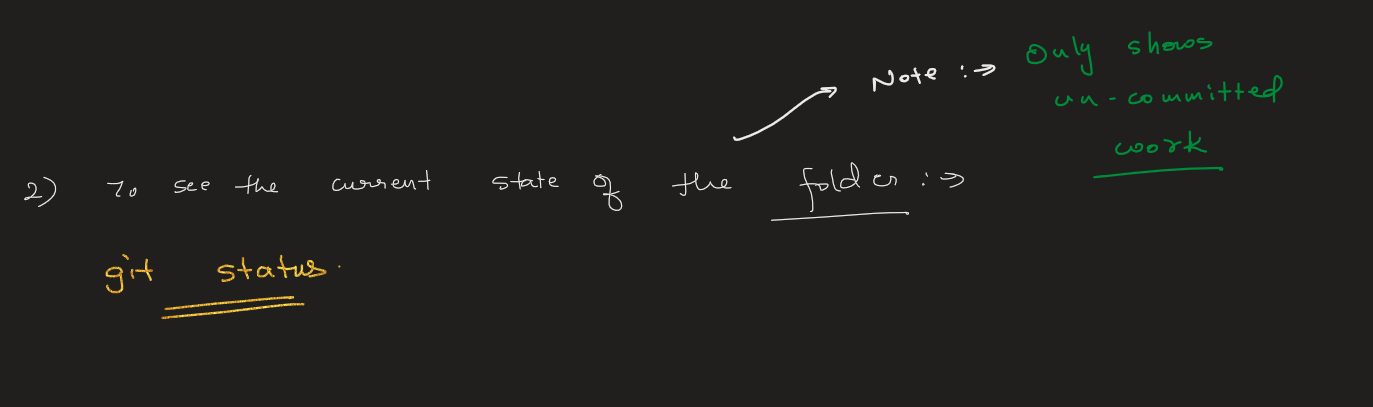 Note :→ Only shows
un-committed
work
2) To see the current state of the folder :→
git status.